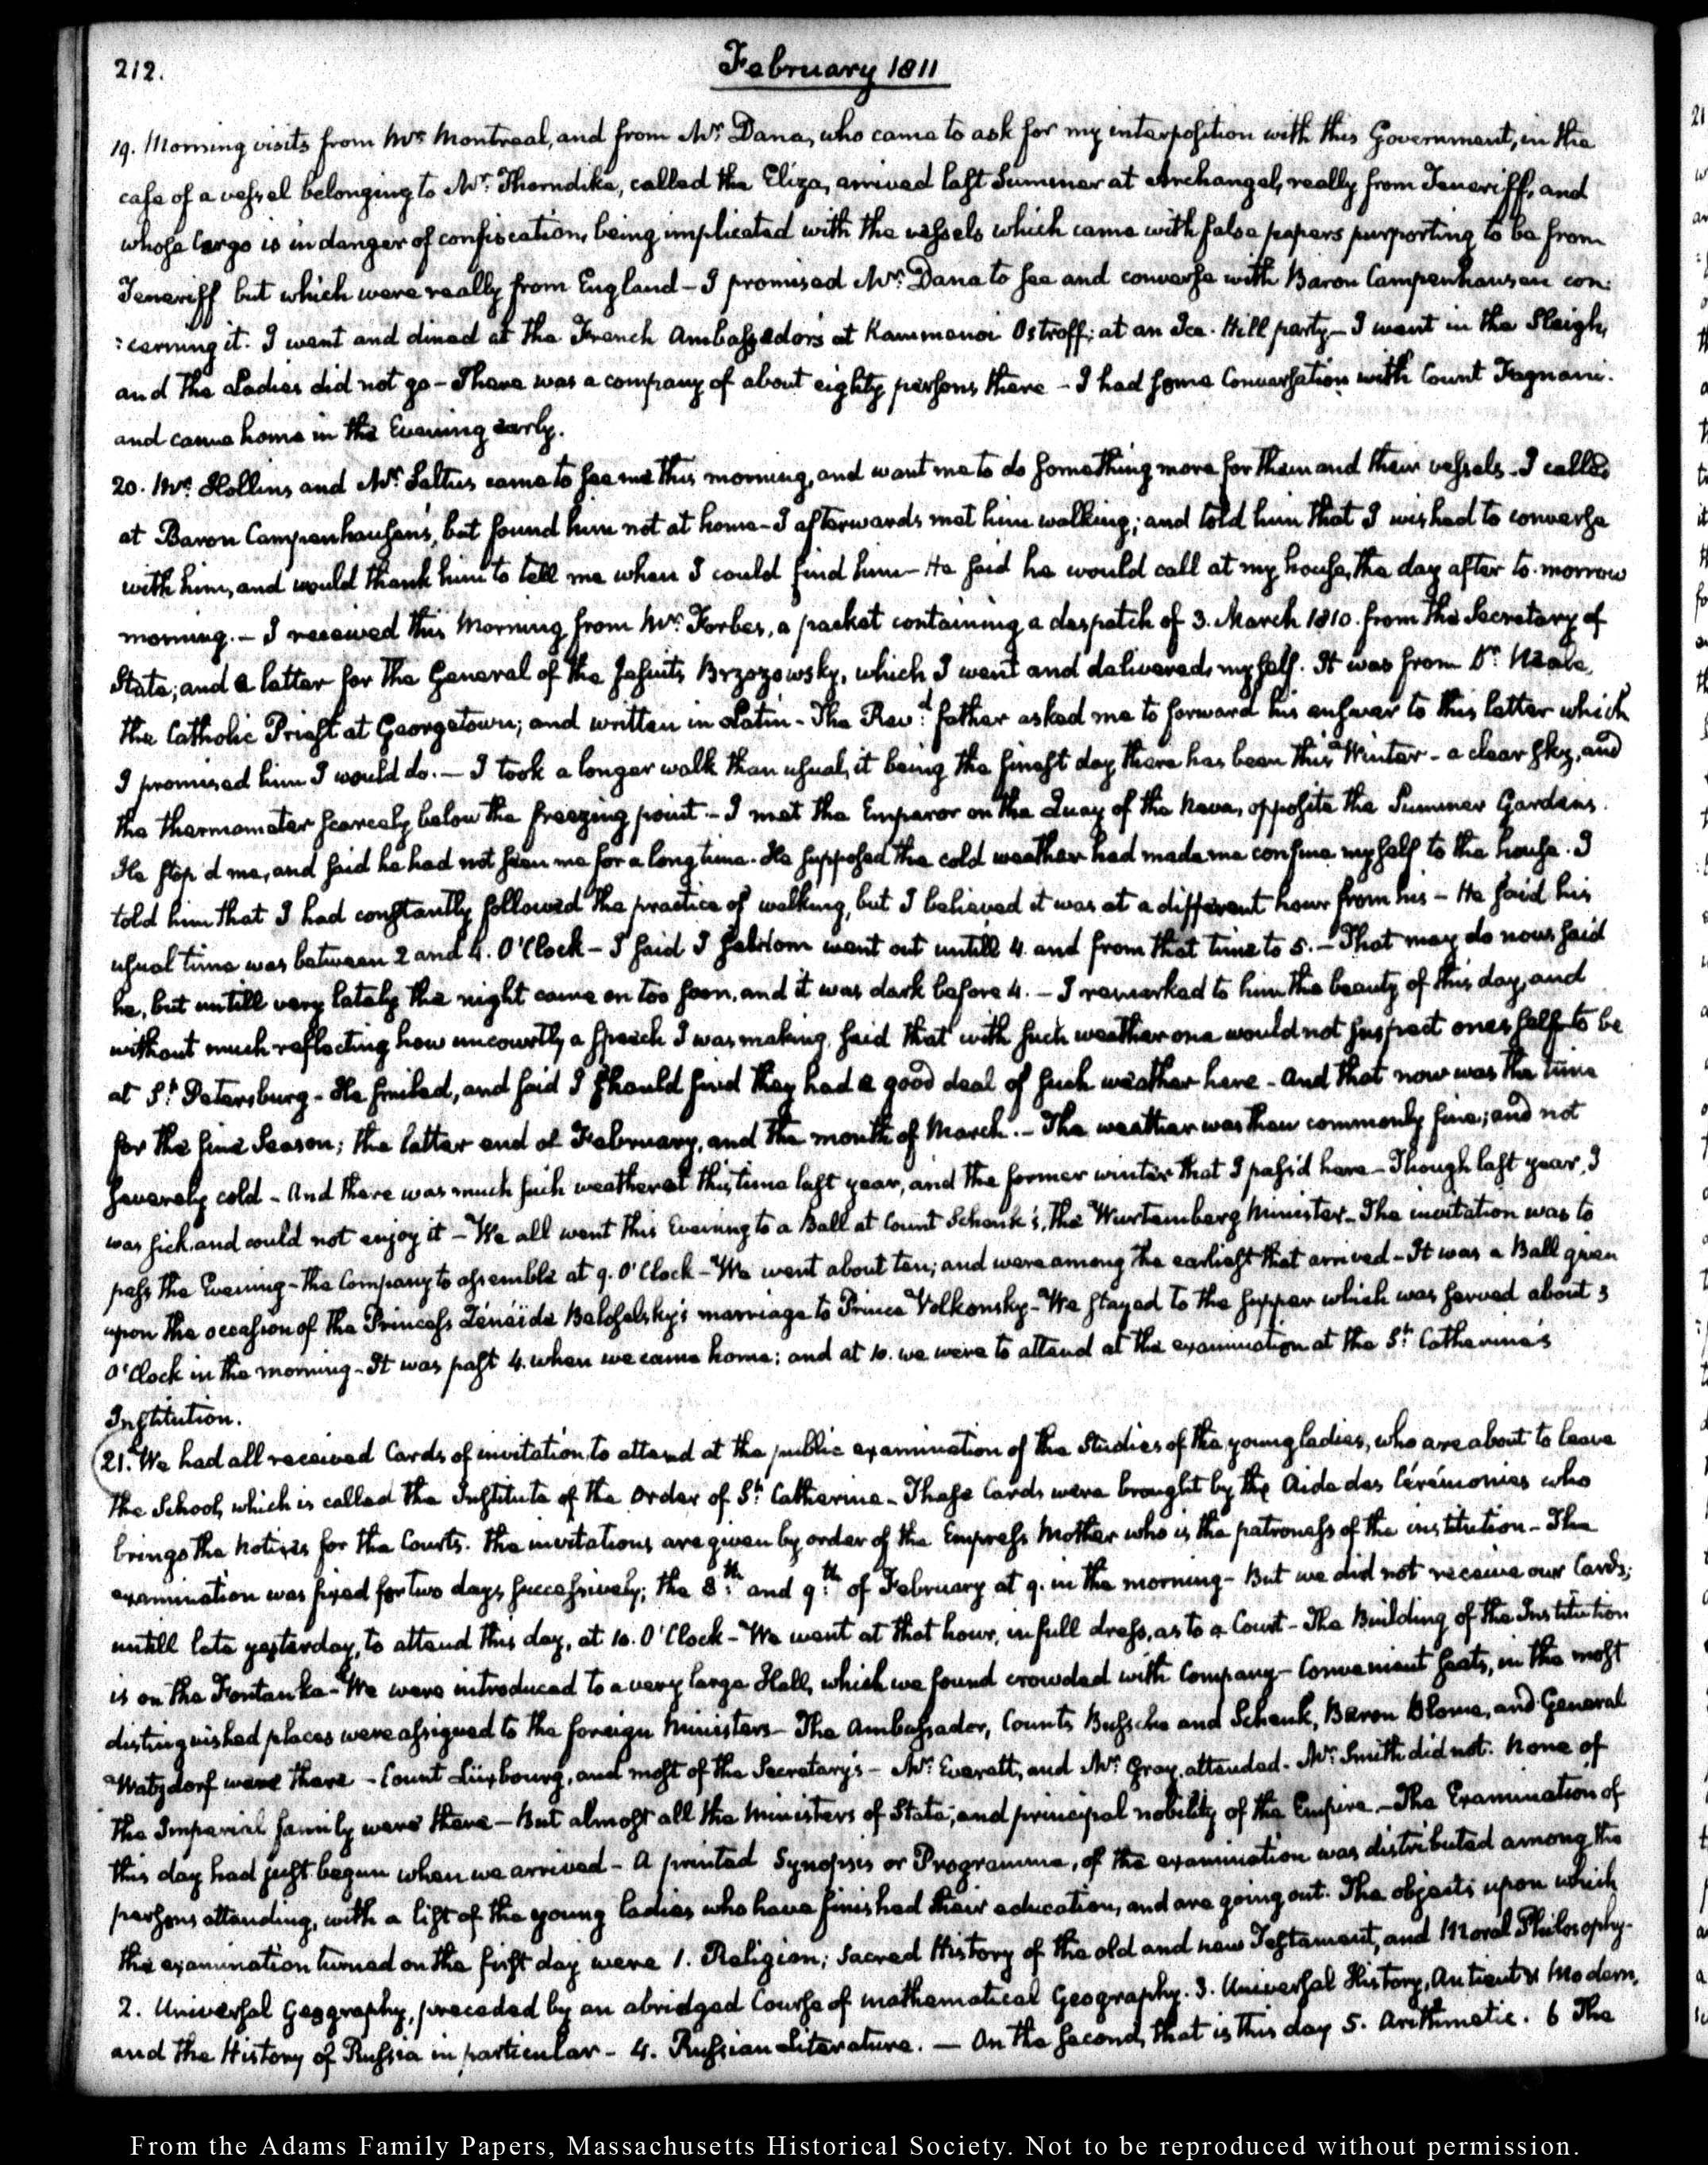 212.
February 1811
19. Morning visits from Mr. Montreal, and from Mr. Dana, who came to ask for my interposition with this Government, in the
case of a vessel belonging to Mr. Thorndike, called the Eliza, arrived last Summer at Archangel, really from Teneriff, and
whose Cargo is in danger of confiscation, being implicated with the vessels which came with false papers purporting to be from
Teneriff but which were really from England - I promised Mr. Dana to see and converse with Baron Campenhausen con:
:cerning it. I went and dined at the French Ambassador's at Kammenoi Ostroff; at an Ice-Hill party - I went in the Sleigh,
and the Ladies did not go - There was a company of about eighty persons there - I had some Conversation with Count Fagnani.
and came home in the Evening early.
20. Mr. Hollins and Mr. Saltus came to see me this morning, and want me to do something more for them and their vessels - I called
at Baron Campenhausen's, but found him not at home - I afterwards met him walking; and told him that I wished to converse
with him, and would thank him to tell me when I could find him - He said he would call at my house, the day after to-morrow
morning. - I received this Morning from Mr. Forbes, a packet containing a despatch of 3. March 1810. from the Secretary of
State; and a letter for the General of the Jesuits, Brzozowsky, which I went and delivered, myself. It was from Dr. Neale,
the Catholic Priest at Georgetown; and written in Latin - The Revd. father asked me to forward his answer to this letter which
I promised him I would do. - I took a longer walk than usual, it being the finest day there has been this Winter - a clear sky, and
the thermometer scarcely below the freezing point - I met the Emperor on the Quay of the Neva, opposite the Summer Gardens.
He stop'd me, and said he had not seen me for a long time. He supposed the cold weather had made me confine myself to the house. I
told him that I had constantly followed the practice of walking, but I believed it was at a different hour from his - He said his
usual time was between 2 and 4. O'Clock - I said I seldom went out untill 4. and from that time to 5. - That may do now, said
he, but untill very lately the night came on too soon, and it was dark before 4. - I remarked to him the beauty of this day, and
without much reflecting how uncourtly a speech I was making, said that with such weather one would not suspect ones self to be
at St. Petersburg - He smiled, and said I should find they had a good deal of such weather here - And that now was the time
for the fine Season; the latter end of February, and the month of March. - The weather was then commonly fine; and not
severely cold - And there was much such weather at this time last year, and the former winter that I pass'd here - Though last year, I
was sick, and could not enjoy it - We all went this Evening to a Ball at Count Schenk's, the Wurtemberg Minister - The invitation was to
pass the Evening - the Company to assemble at 9. O'Clock - We went about ten; and were among the earliest that arrived - It was a Ball given
upon the occasion of the Princess Zénéide Beloselsky's marriage to Prince Volkonsky - We stayed to the supper which was served about 3
O'Clock in the morning - It was past 4. when we came home; and at 10. we were to attend at the examination at the St. Catherine's
Institution.
21. We had all received Cards of invitation, to attend at the public examination of the Studies of the young ladies, who are about to leave
the School, which is called the Institute of the order of St. Catherine - These Cards were brought by the Aide des Cérémonies who
brings the notices for the Courts. the invitations are given by order of the Empress Mother who is the patroness of the institution - The
examination was fixed for two days successively; the 8th. and 9th. of February at 9. in the morning - But we did not receive our Cards;
untill late yesterday, to attend this day, at 10. O'Clock - We went at that hour, in full dress, as to a Court - The Building of the Institution
is on the Fontanka - We were introduced to a very large Hall, which we found crowded with Company - Convenient seats, in the most
distinguished places were assigned to the foreign Ministers - The Ambassador, Counts Bussche and Schenk, Baron Blome, and General
Watzdorf were there - Count Lüxbourg, and most of the Secretary's - Mr. Everett, and Mr. Gray, attended. Mr. Smith did not. None of
the Imperial family were there - But almost all the Ministers of State; and principal nobility of the Empire. - The Examination of
this day had just begun when we arrived - A printed Synopsis or Programme, of the examination was distributed among the
persons attending, with a list of the young ladies who have finished their education, and are going out. The objects upon which
the examination turned on the first day were 1. Religion; Sacred History of the old and new Testament, and Moral Philosophy -
2. Universal Geography, preceded by an abridged Course of mathematical Geography. 3. Universal History, Antient & Modern,
and the History of Russia in particular - 4. Russian Literature. - On the second, that is this day 5. Arithmetic. 6 The
From the Adams Family Papers, Massachusetts Historical Society. Not to be reproduced without permission.